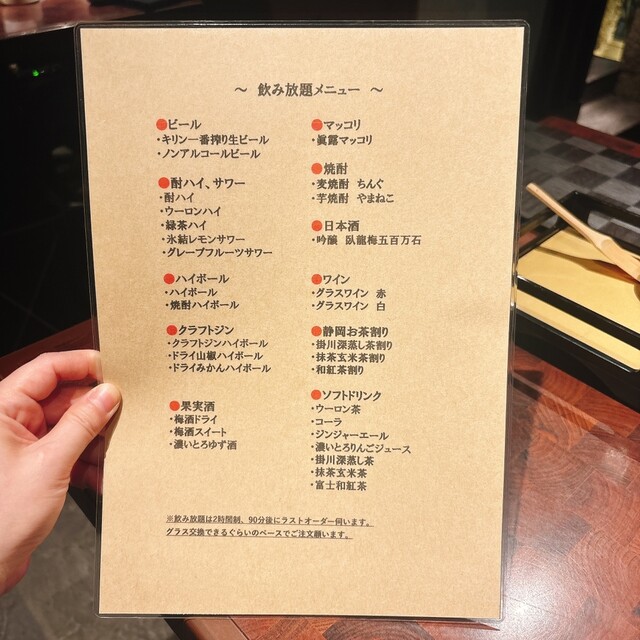 ～ 飲み放題メニュー ～
●ビール
・キリン一番搾り生ビール
・ノンアルコールビール
●酎ハイ、サワー
・酎ハイ
・ウーロンハイ
・緑茶ハイ
・氷結レモンサワー
・グレープフルーツサワー
●ハイボール
・ハイボール
・焼酎ハイボール
●クラフトジン
・クラフトジンハイボール
・ドライ山椒ハイボール
・ドライみかんハイボール
●果実酒
・梅酒ドライ
・梅酒スイート
・濃いとろゆず酒
●マッコリ
・眞露マッコリ
●焼酎
・麦焼酎 ちんぐ
・芋焼酎 やまねこ
●日本酒
・吟醸 臥龍梅五百万石
●ワイン
・グラスワイン 赤
・グラスワイン 白
●静岡お茶割り
・掛川深蒸し茶割り
・抹茶玄米茶割り
・和紅茶割り
●ソフトドリンク
・ウーロン茶
・コーラ
・ジンジャーエール
・濃いとろりんごジュース
・掛川深蒸し茶
・抹茶玄米茶
・富士和紅茶
※飲み放題は2時間制、90分後にラストオーダー伺います。
グラス交換できるぐらいのペースでご注文願います。